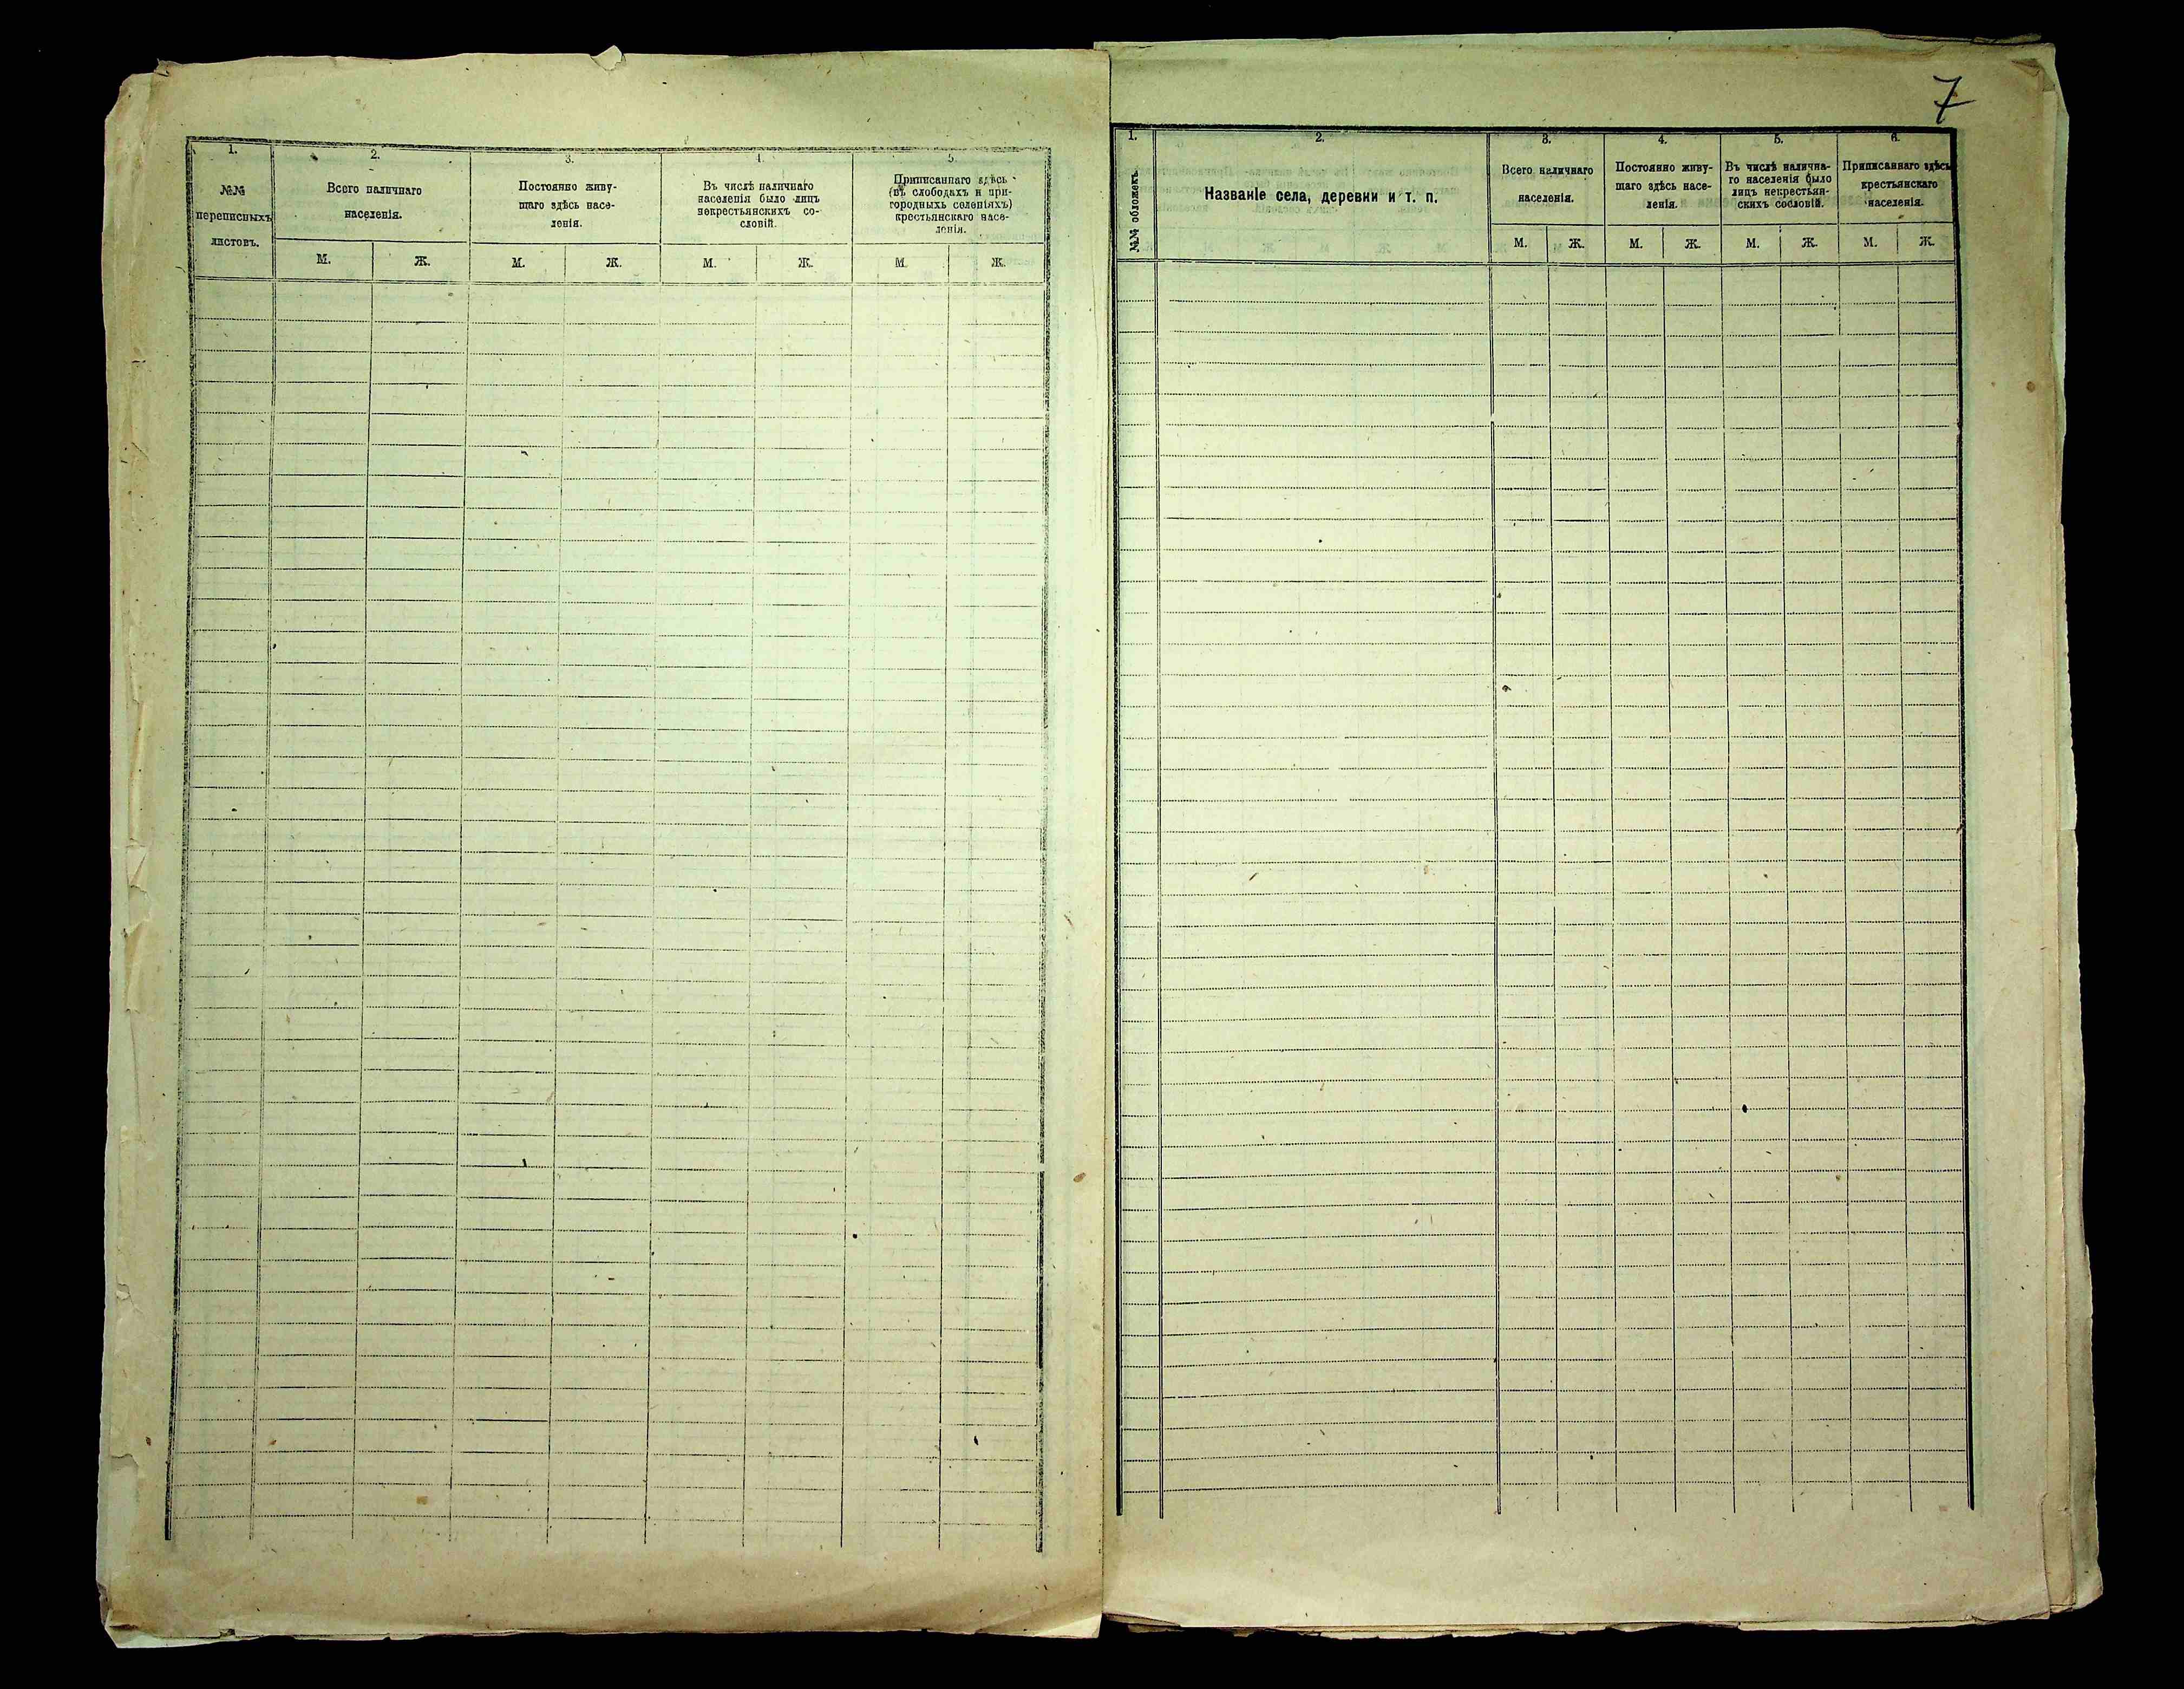 1.
№№
переписныхъ
листовъ.
2.
Всего наличнаго
населенія.
М. Ж.
3.
Постоянно живу-
щаго здѣсь насе-
ленія.
М. Ж.
4.
Въ числѣ наличнаго
населенія было лицъ
некрестьянскихъ со-
словій.
М. Ж.
5.
Приписаннаго здѣсь
(въ слободахъ и при-
городныхъ селеніяхъ)
крестьянскаго насе-
ленія.
М. Ж.
7
1.
№№ обложекъ.
2.
Названіе села, деревни и т. п.
3.
Всего наличнаго
населенія.
М. Ж.
4.
Постоянно живу-
щаго здѣсь насе-
ленія.
М. Ж.
5.
Въ числѣ налична-
го населенія было
лицъ некрестьян-
скихъ сословій.
М. Ж.
6.
Приписаннаго здѣсь
крестьянскаго
населенія.
М. Ж.